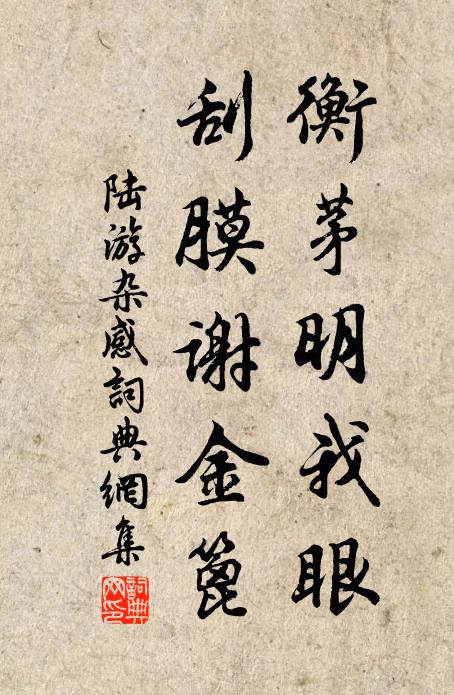 衡茅明我眼
刮膜谢金篦
陆游杂感詞典網集
詞典网印